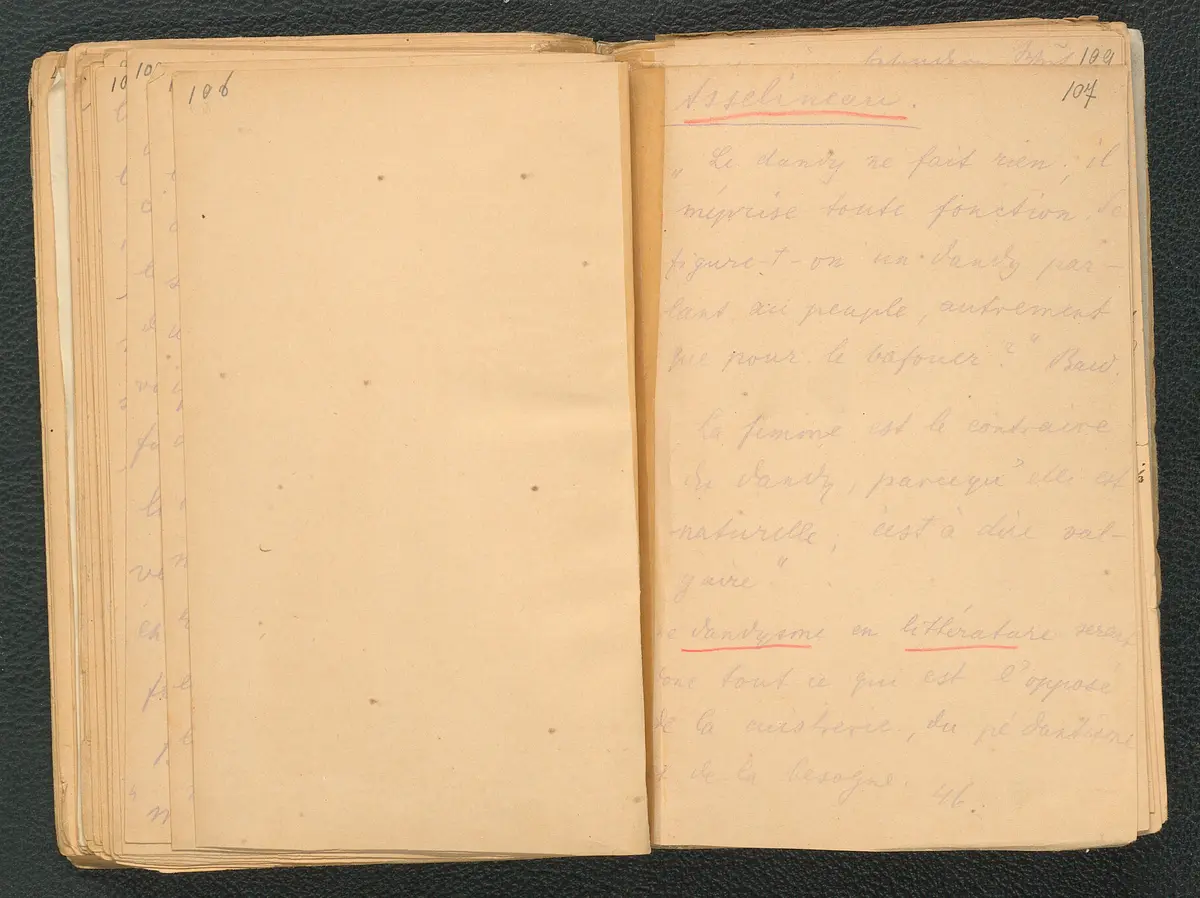 106
109
107
Asselineau.
„ Le dandy ne fait rien; il
méprise toute fonction. Se
figure-t-on un dandy par-
lant au peuple, autrement
que pour le bafouer?" Baud.
La femme est le contraire
du dandy, parcequ'elle est
naturelle, c'est à dire vul-
gaire"
Le dandysme en littérature serait
donc tout ce qui est l'opposé
de la cuistrerie, du pédantisme
et de la besogne. 46.